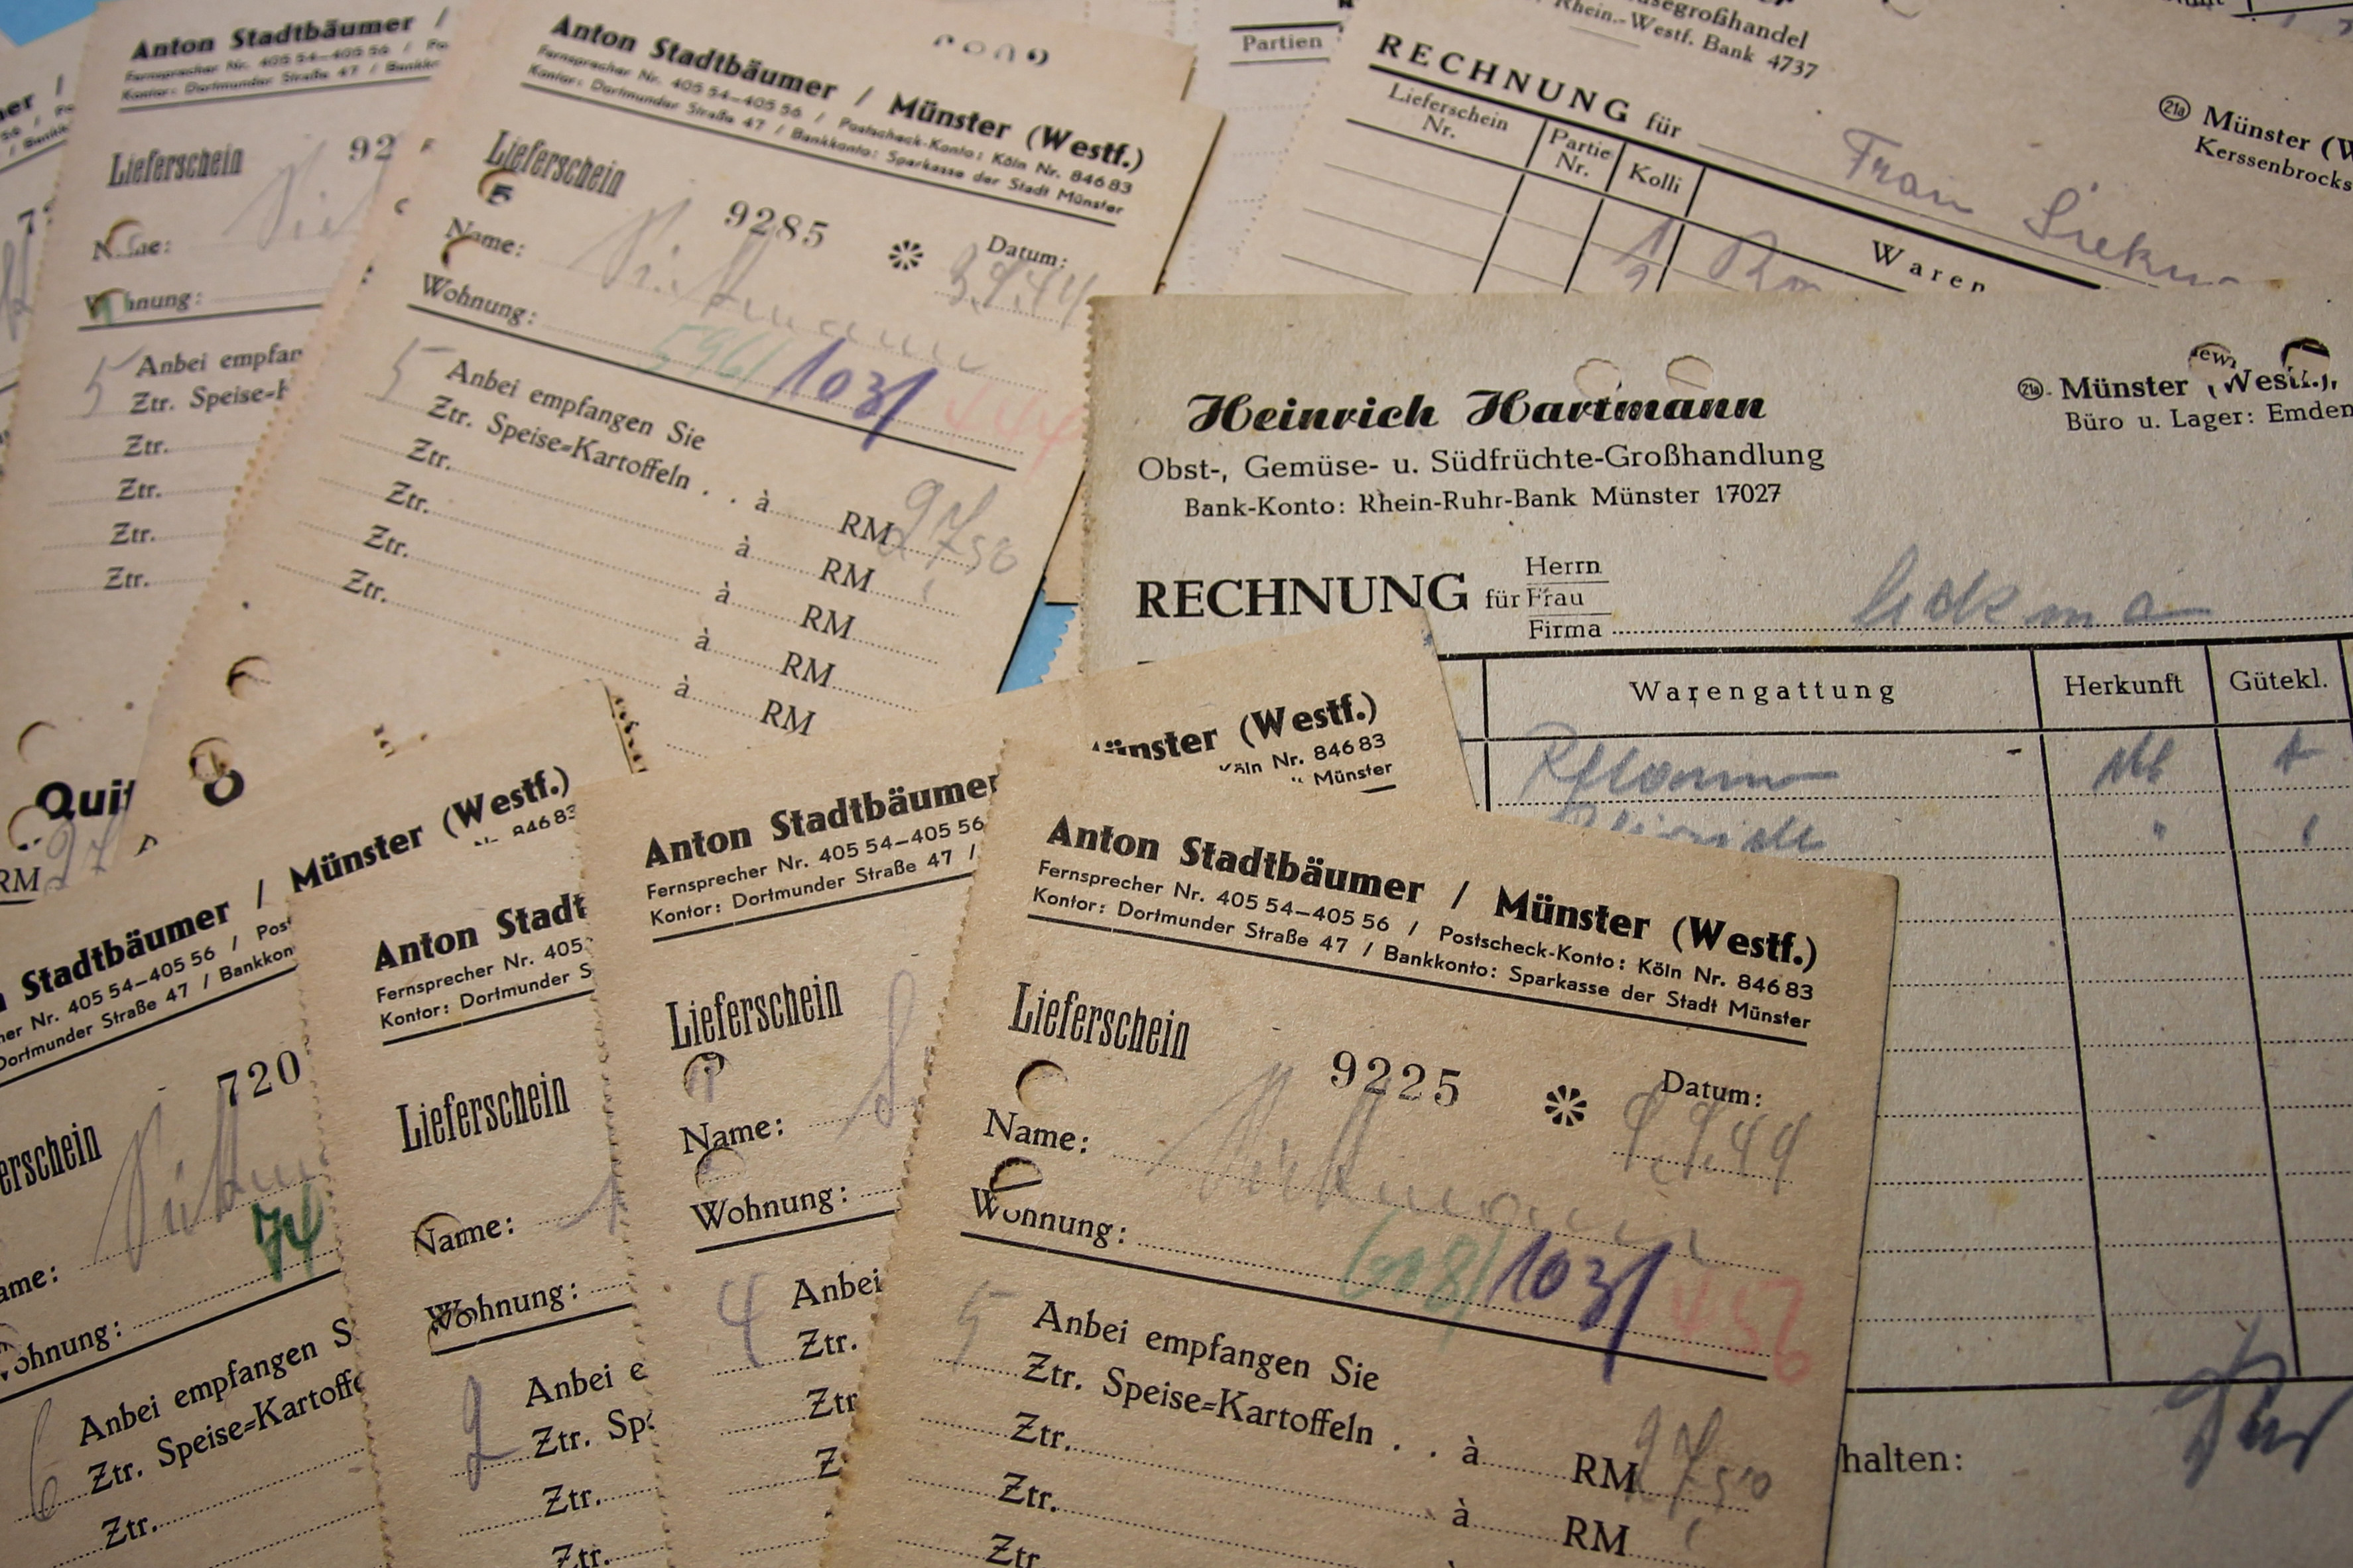 Anton Stadtbäumer /
Fernsprecher Nr. 405 54–405 56 / Po
Kontor: Dortmunder Straße 47 / Bankk
Lieferschein
92
Wohnung:
5 Anbei empfan
Ztr. Speise-K
Ztr.
Ztr.
Ztr.
Ztr.
Anton Stadtbäumer / Münster (Westf.)
Fernsprecher Nr. 405 54–405 56 / Postscheck-Konto: Köln Nr. 846 83
Kontor: Dortmunder Straße 47 / Bankkonto: Sparkasse der Stadt Münster
Lieferschein
9285
Datum:
Name:
3.9.44
Wohnung:
596/ 103/ 444
5 Anbei empfangen Sie
Ztr. Speise-Kartoffeln . . à RM 27,50
Ztr. à RM
Ztr. à RM
Ztr. à RM
Ztr. à RM
Partien
segroßhandel
Rhein.-Westf. Bank 4737
RECHNUNG für Frau
Lieferschein Nr.
Partie Nr.
Kolli
Waren
1/2
21a Münster (W
Kerssenbrocks
Heinrich Hartmann
Obst-, Gemüse- u. Südfrüchte-Großhandlung
Bank-Konto: Rhein-Ruhr-Bank Münster 17027
21a Münster (Westf.),
Büro u. Lager: Emden
RECHNUNG für
Herrn
Frau
Firma
Warengattung
Herkunft
Gütekl.
A
halten:
Quit
RM 27
Stadtbäumer / Münster (Westf.)
er Nr. 405 54–405 56 / Pos
Dortmunder Straße 47 / Bankkon
erschein
720
ame:
74
ohnung:
6 Anbei empfangen S
Ztr. Speise-Kartoffe
Ztr.
Anton Stadt
Fernsprecher Nr. 405
Kontor: Dortmunder S
Lieferschein
Name:
Wohnung:
2 Anbei e
Ztr. Sp
Ztr.
Ztr.
Anton Stadtbäumer
Fernsprecher Nr. 405 54–405 56
Kontor: Dortmunder Straße 47 /
Lieferschein
Name:
Wohnung:
4 Anbei
Ztr.
Ztr
Z
Münster (Westf.)
Köln Nr. 846 83
Münster
Anton Stadtbäumer / Münster (Westf.)
Fernsprecher Nr. 405 54–405 56 / Postscheck-Konto: Köln Nr. 846 83
Kontor: Dortmunder Straße 47 / Bankkonto: Sparkasse der Stadt Münster
Lieferschein
9225
Datum:
Name:
1.9.44
Wohnung:
608/ 103/ 456
5 Anbei empfangen Sie
Ztr. Speise-Kartoffeln . . à RM 27,50
Ztr. à RM
Ztr.
Ztr